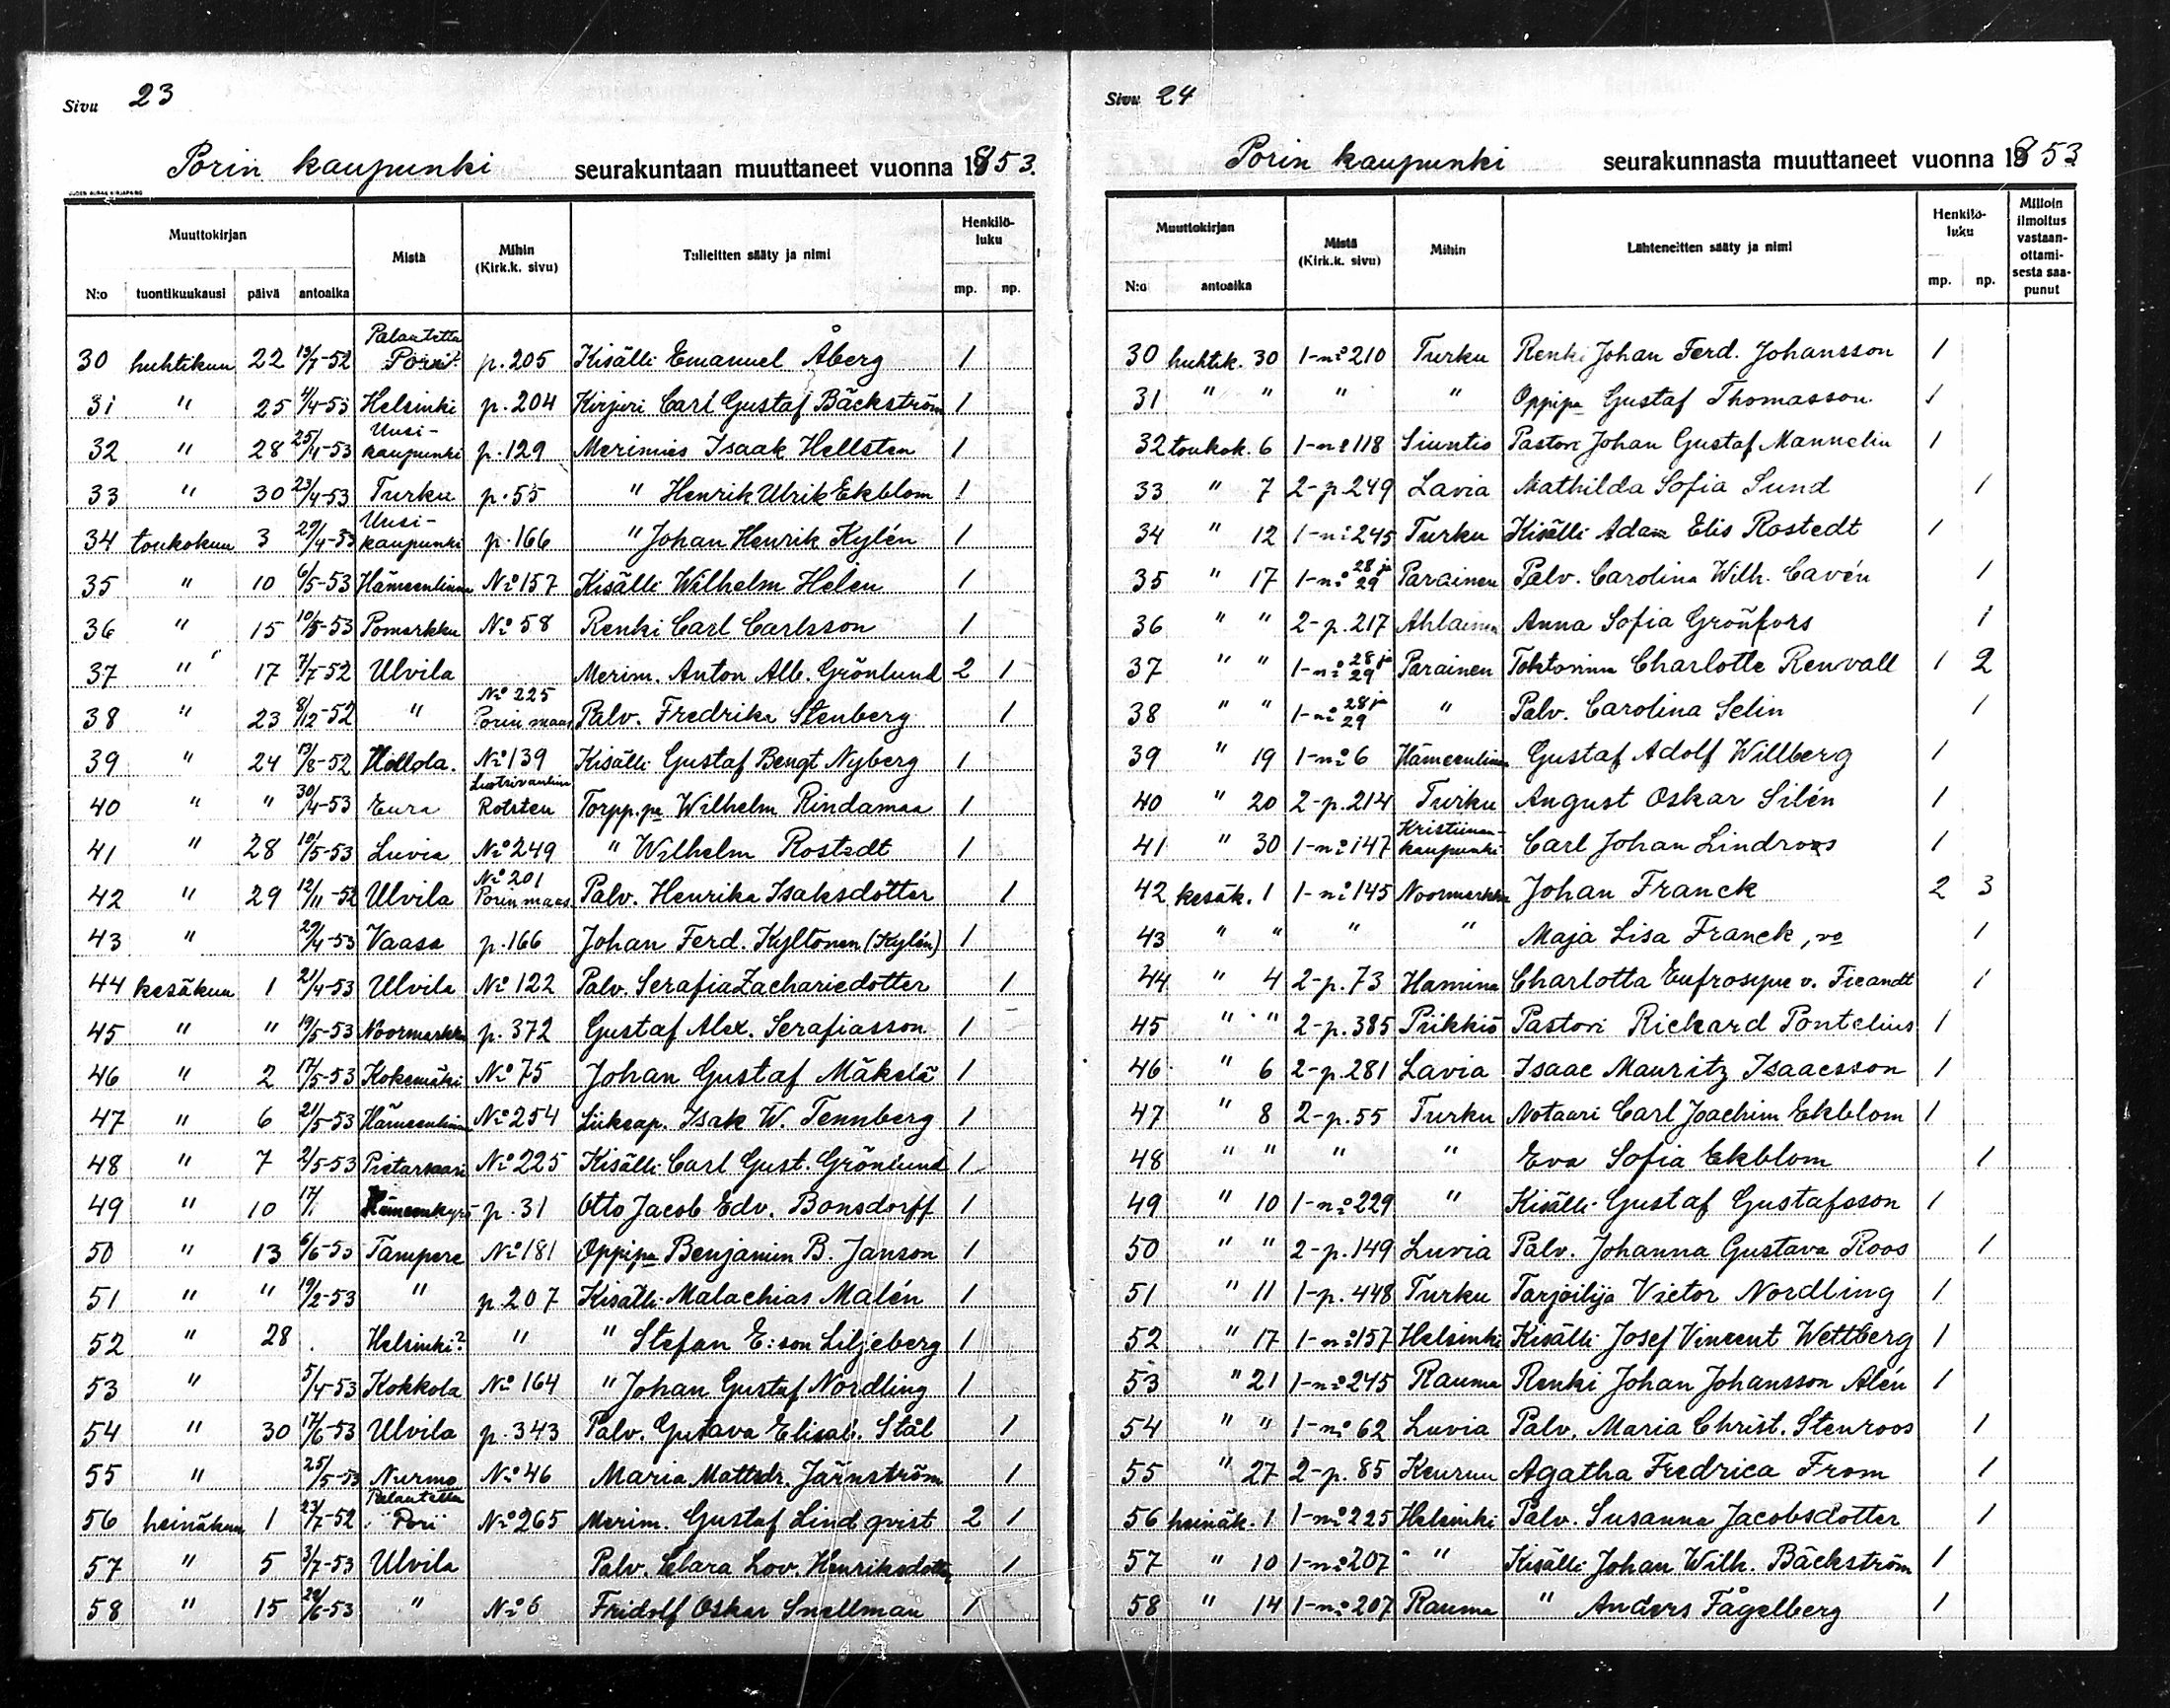 Sivu 23
Porin kaupunki seurakuntaan muuttaneet vuonna 1853.
Muuttokirjan Mistä Mihin (Kirk.k. sivu) Tulleitten sääty ja nimi Henkilö-luku
N:o tuontikuukausi päivä antoaika mp. np.
30 huhtikuu 22 13/7-52 Palautettu Porist. p. 205 Kisälli Emanuel Åberg 1
31 " 25 4/4-53 Helsinki p. 204 Kirjuri Carl Gustaf Bäckström 1
32 " 28 25/4-53 Uusi-kaupunki p. 129 Merimies Isaak Hellsten 1
33 " 30 23/4-53 Turku p. 55 " Henrik Ulrik Ekblom 1
34 toukokuu 3 29/4-53 Uusi-kaupunki p. 166 " Johan Henrik Kylén 1
35 " 10 6/5-53 Hämeenlinna No 157 Kisälli Wilhelm Helen 1
36 " 15 10/5-53 Pomarkku No 58 Renki Carl Carlsson 1
37 " 17 7/7-52 Ulvila Merim. Anton Alb. Grönlund 2 1
38 " 23 8/12-52 " No 225 Porin maas. Palv. Fredrika Stenberg 1
39 " 24 13/8-52 Hollola. No 139 Kisälli Gustaf Bengt Nyberg 1
40 " " 30/4-53 Eura Rotsten Torpp.pa Wilhelm Rindamaa 1
41 " 28 10/5-53 Luvia No 249 " Wilhelm Rostedt 1
42 " 29 12/11-52 Ulvila No 201 Porin maas. Palv. Henrika Isaksdotter 1
43 " 29/4-53 Vaasa p. 166 Johan Ferd. Kyltönen (Kylén) 1
44 kesäkuu 1 21/4-53 Ulvila No 122 Palv. Serafia Zachariedotter 1
45 " " 19/5-53 Noormarkku p. 372 Gustaf Alex. Serafiasson 1
46 " 2 17/5-53 Kokemäki No 75 Johan Gustaf Mäkelä 1
47 " 6 21/5-53 Hämeenlinna No 254 Liikeap. Isak W. Tennberg 1
48 " 7 2/5-53 Pietarsaari No 225 Kisälli Carl Gust. Grönlund 1
49 " 10 17/ Hämeenkyrö p. 31 Otto Jacob Edv. Bonsdorff 1
50 " 13 6/6-53 Tampere No 181 Oppipa Benjamin B. Janson 1
51 " " 19/2-53 " p. 207 Kisälli Malachias Malén 1
52 " 28 Helsinki? " " Stefan E:son Liljeberg 1
53 " 5/4-53 Kokkola No 164 " Johan Gustaf Nordling 1
54 " 30 17/6-53 Ulvila p. 343 Palv. Gustava Elisab. Stål 1
55 " 25/5-53 Nurmo No 46 Maria Mattsdr. Järnström 1
56 heinäkuu 1 23/7-52 Palautettu Pori No 265 Merim. Gustaf Lindqvist 2 1
57 " 5 3/7-53 Ulvila Palv. Clara Lov. Henriksdotter 1
58 " 15 29/6-53 " No 6 Fridolf Oskar Snellman 1
Sivu 24
Porin kaupunki seurakunnasta muuttaneet vuonna 1853
Muuttokirjan Mistä (Kirk.k. sivu) Mihin Lähteneitten sääty ja nimi Henkilö-luku Milloin ilmoitus vastaan-ottami-sesta saa-punut
N:o antoaika mp. np.
30 huhtik. 30 1-no 210 Turku Renki Johan Ferd. Johansson 1
31 " " " " Oppipa Gustaf Thomasson 1
32 toukok. 6 1-no 118 Siuntio Pastori Johan Gustaf Mannelin 1
33 " 7 2-p. 249 Lavia Mathilda Sofia Sund 1
34 " 12 1-no 245 Turku Kisälli Adam Elis Rostedt 1
35 " 17 1-no 28 ja 29 Parainen Palv. Carolina Wilh. Cavén 1
36 " " 2-p. 217 Ahlainen Anna Sofia Grönfors 1
37 " " 1-no 28 ja 29 Parainen Tohtorinna Charlotte Renvall 1 2
38 " " 1-no 28 ja 29 " Palv. Carolina Selin 1
39 " 19 1-no 6 Hämeenlinna Gustaf Adolf Willberg 1
40 " 20 2-p. 214 Turku August Oskar Silén 1
41 " 30 1-no 147 Kristiinan-kaupunki Carl Johan Lindroos 1
42 kesäk. 1 1-no 145 Noormarkku Johan Franck 2 3
43 " " " " Maja Lisa Franck, vo 1
44 " 4 2-p. 73 Hamina Charlotta Eufrosyne v. Fieandt 1
45 " " 2-p. 385 Piikkiö Pastori Rickard Pontelius 1
46 " 6 2-p. 281 Lavia Isaac Mauritz Isaacsson 1
47 " 8 2-p. 55 Turku Notaari Carl Joachim Ekblom 1
48 " " " " Eva Sofia Ekblom 1
49 " 10 1-no 229 " Kisälli Gustaf Gustafsson 1
50 " " 2-p. 149 Luvia Palv. Johanna Gustava Roos 1
51 " 11 1-p. 448 Turku Tarjoilija Victor Nordling 1
52 " 17 1-no 157 Helsinki Kisälli Josef Vincent Wettberg 1
53 " 21 1-no 245 Rauma Renki Johan Johansson Alén 1
54 " " 1-no 62 Luvia Palv. Maria Christ. Stenroos 1
55 " 27 2-p. 85 Keuruu Agatha Fredrica From 1
56 heinäk. 1 1-no 225 Helsinki Palv. Susanna Jacobsdotter 1
57 " 10 1-no 207 " Kisälli Johan Wilh. Bäckström 1
58 " 14 1-no 207 Rauma " Anders Fågelberg 1